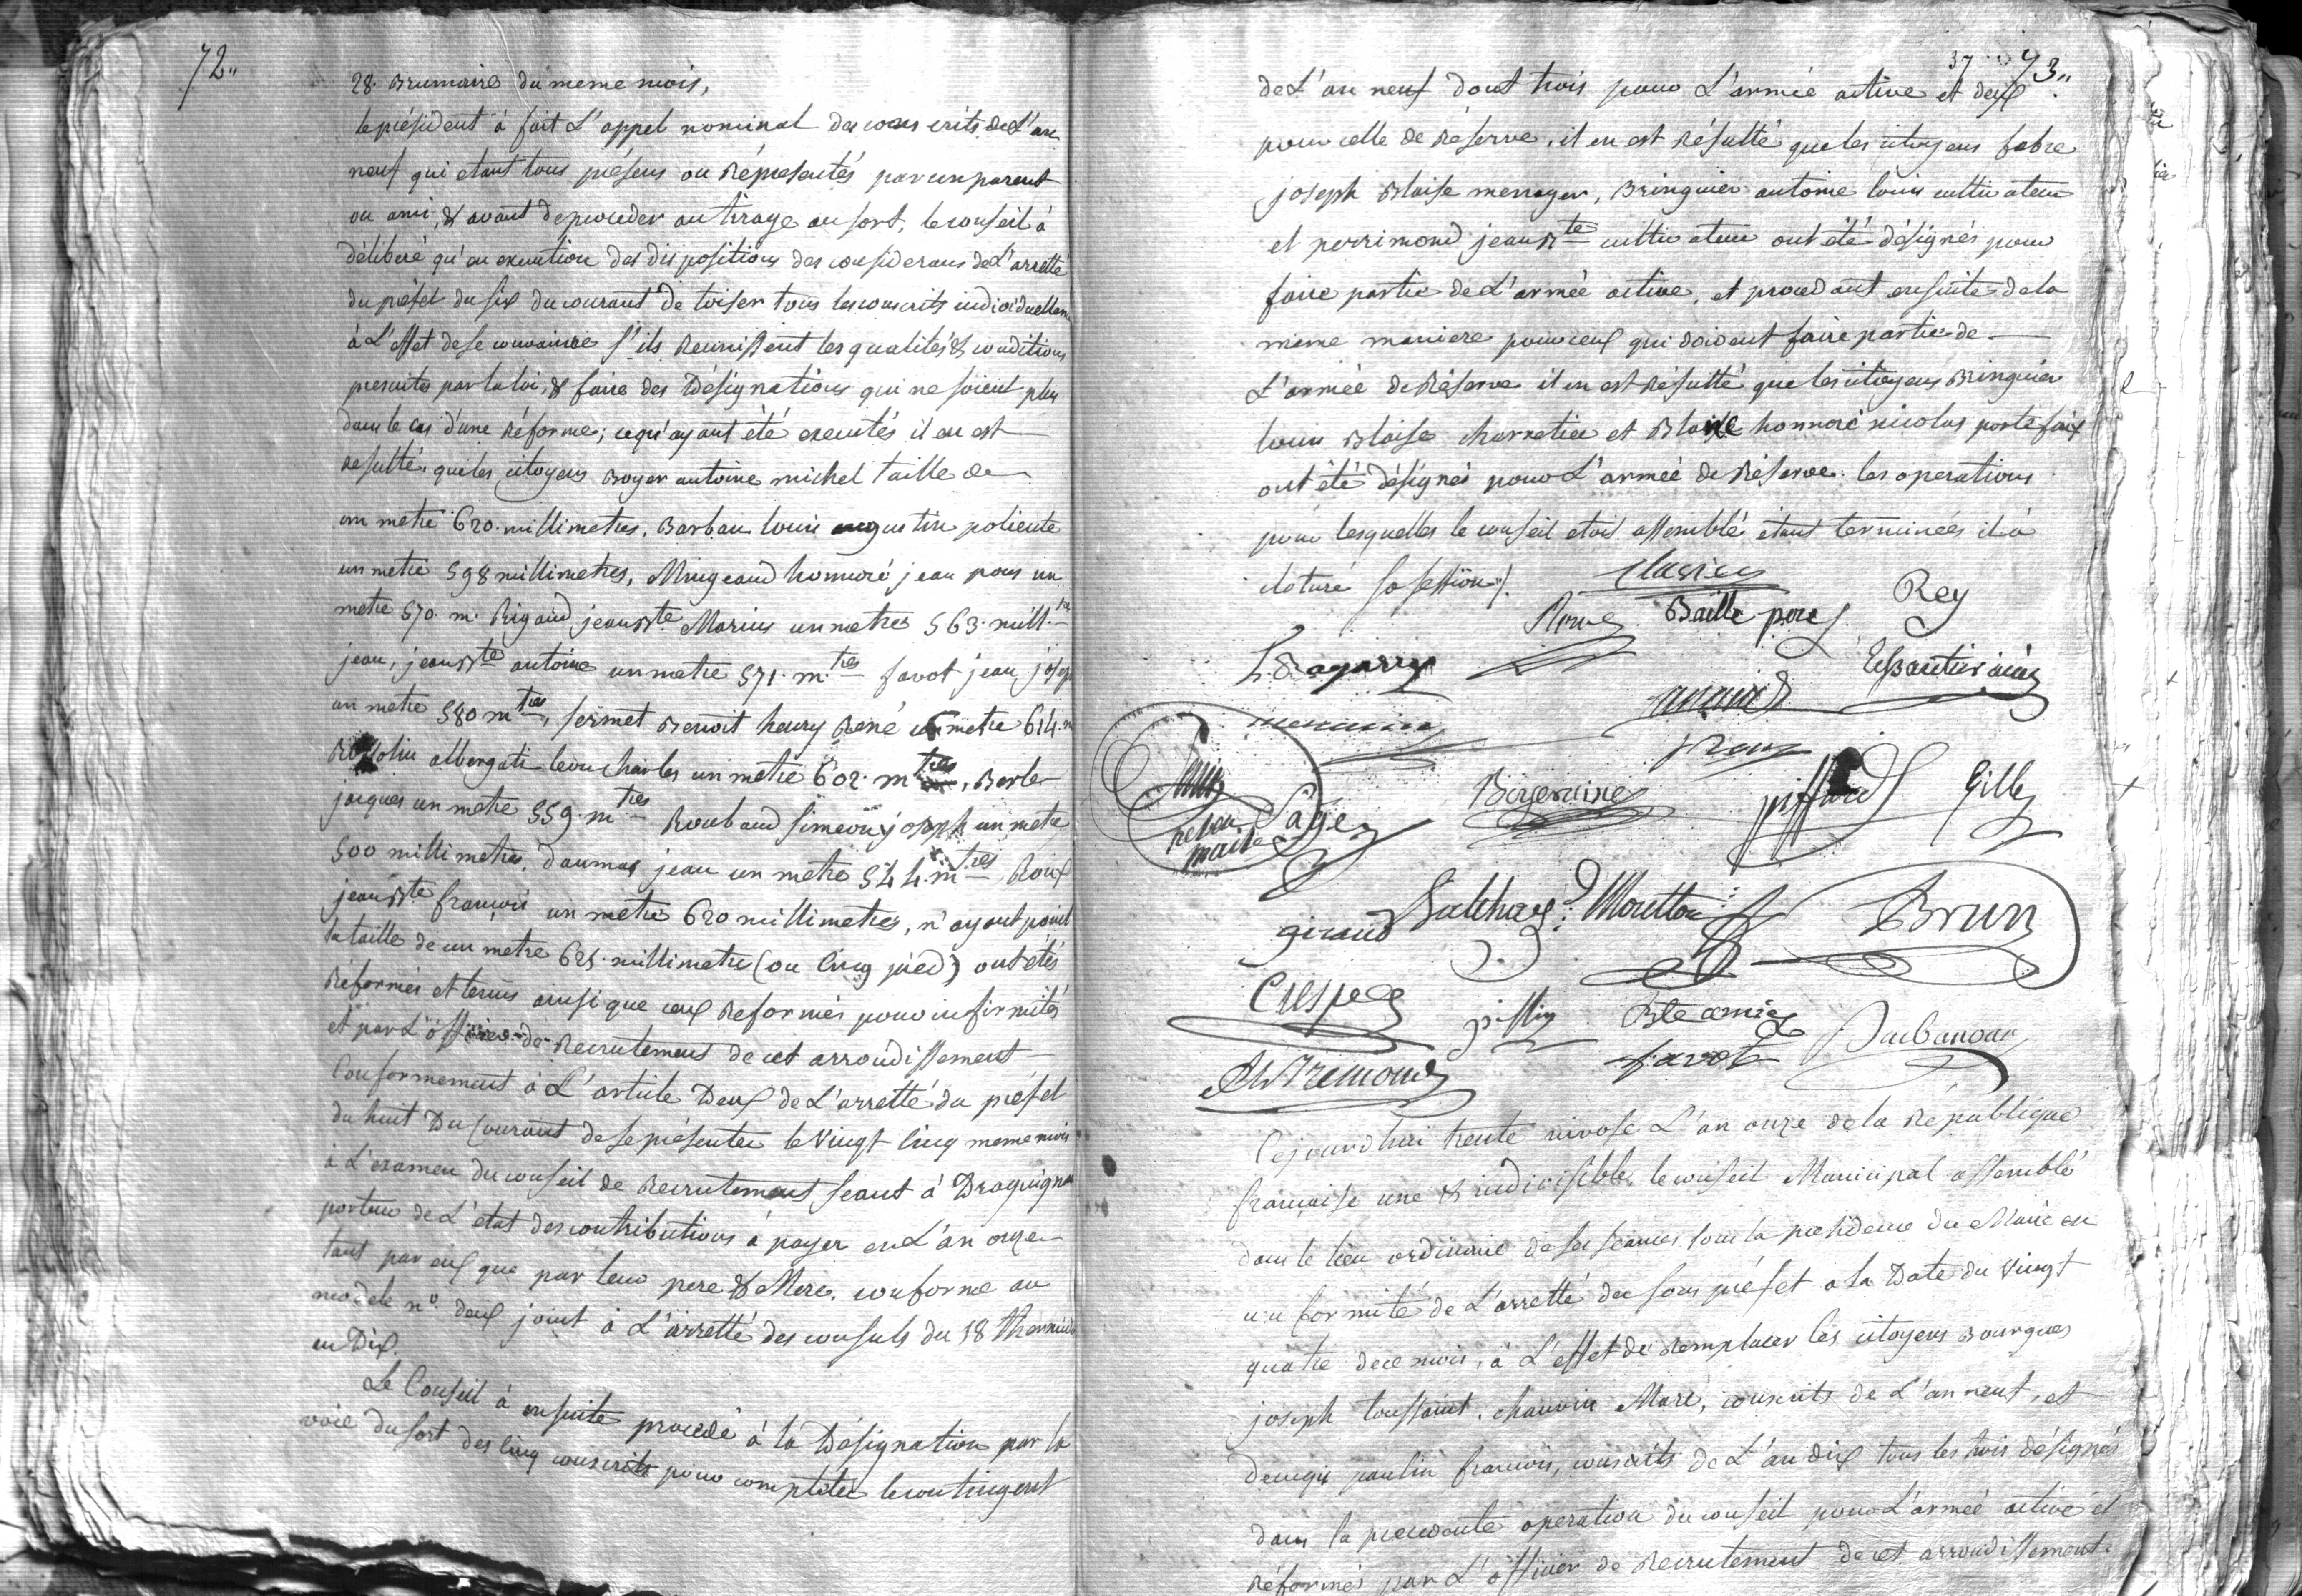 72..
28. Brumaire du meme mois,
le président à fait L'appel nominal des conscrits de L'an
neuf qui etant tous présens ou Représentés par un parent
ou ami, & avant de proceder au tirage au sort, le conseil à
délibéré qu'en execution des dispositions des considerans de L'arretté
du préfet du six du courant de toiser tous les conscrits individuellem
à L'effet de se convaincre s'ils Reunissent les qualités & conditions
prescrites par la loi, & faire des Désignations qui ne soient plus
dans le cas d'une Réforme; ce qu'ayant été executés il en est
resulté que les citoyens Boyer antoine michel taille de
un metre 620. millimetres, Barbau louis augustin
un metre 598 millimetres, Mougeaud honnoré jean pons un
metre 570. m. Rigaud jean Bte Marius un metre 563. mill.tres
jean, jean Bte antoine un metre 571. m.tres favot jean, josep
un metre 580 mtres, fermet Benoit henry René un metre 614. m
albergati leon charles un metre 602. mtres, Berle
jacques un metre 559. mtres Roubaud simeon joseph un metre
500 millimetres, daumas jean un metre 544. mtres, Roux
jean Bte françois un metre 620 millimetres, n'ayant point
la taille de un metre 625. millimetre (ou cinq pied) ont étés
Réformés et tenus ainsi que ceux Reformés pour infirmités
et par L'officier de Recrutement de cet arrondissement
Conformement à L'article Deux de L'arretté du préfet
du huit Du Courant de se présenter le Vingt cinq meme mois
à L'examen du conseil de Recrutement seant à Draguignan
porteur de L'etat des contributions à payer en L'an onze
tant par eux que par leur pere & Mere, conforme au
modele n°. deux joint à L'arretté des consuls du 18 thermid
an Dix.
Le Conseil à ensuite procedé à la Désignation par la
voie du sort des cinq conscrits pour completer le contingent
37 73..
de L'an neuf dont trois pour L'armée active et deux
pour celle de Réserve, il en est Résulté que les citoyens fabre
joseph Blaise menager, Bringuier antoine louis cultivateur
et perrimond jean Bte cultivateur ont été désignés pour
faire partie de L'armée active, et procedant ensuite de la
meme maniere pour ceux qui doivent faire partie de
L'armée de Réserve il en est Résulté que les citoyens Bringuier
louis Blaise charretier et Blaise honnoré nicolas portefaix
ont été désignés pour L'armée de Réserve. les operations
pour lesquelles le conseil etoit assemblé étant terminées il à
cloturé sa session ./.
Clavier Rey
Roux Baille pere
Sayer Gille
giraud Balthard Moutton Brun
Crespe
favot
Cejourdhui trente nivose L'an onze de la République
française une & indivisible, le conseil Municipal assemblé
dans le lieu ordinaire de ses seances sous la présidence du Maire en
conformité de L'arretté du sous préfet à la Date du Vingt
quatre de ce mois, à L'effet de Remplacer les citoyens Bourgues
joseph toussaint, chauvin Marc, conscrits de L'an neuf, et
paulin francois, conscrits de L'an dix tous les trois désignés
dans la precedente operation du conseil pour L'armée active et
Réformés par L'officier de Recrutement de cet arrondissement.